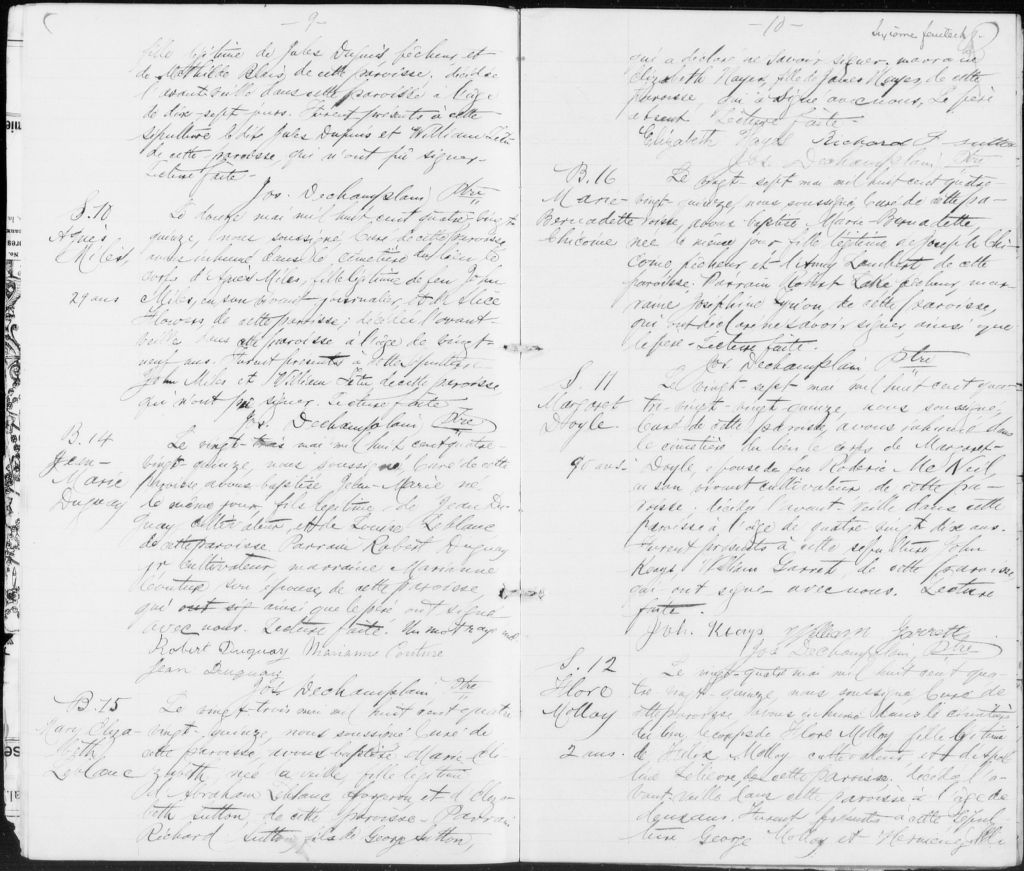 - 9 -
fille légitime de Jules Dupuis, pêcheur et
de Mathilde Blais, de cette paroisse, décédée
l'avant-veille dans cette paroisse à l'âge
de dix-sept jours. Furent présents à cette
sépulture le dix Jules Dupuis et William
de cette paroisse, qui n'ont pû signer.
Lecture faite.
Jos. Dechamplain Ptre
S. 10
Agnès
Miles,
29 ans
Le douze mai mil huit cent quatre-vingt
quinze, nous soussigné Curé de cette paroisse,
avons inhumé dans le cimetière du lieu le
corps d'Agnès Miles, fille légitime de feu John
Miles, en son vivant journalier, et d'Alice
Flowers, de cette paroisse; décédée l'avant-
veille dans cette paroisse à l'âge de vingt-
neuf ans. Furent présents à cette sépulture
John Miles et William de cette paroisse
qui n'ont pu signer. Lecture faite
Jos. Dechamplain Ptre
B. 14
Jean-
Marie
Duguay
Le vingt-trois mai mil huit cent quatre-
vingt quinze, nous soussigné Curé de cette
paroisse avons baptisé Jean-Marie né
le même jour, fils légitime, de Jean Du-
guay cultivateur, et de Louise Leblanc
de cette paroisse. Parrain Robert Duguay
jr cultivateur, marraine Marianne
Couture son épouse, de cette paroisse,
qui ont sig ainsi que le père ont signé
avec nous. Lecture faite. Un mot rayé nul
Robert Duguay Marianne Couture
Jean Duguay
Jos Dechamplain Ptre
B. 15
Mary Eliza-
beth
Leblanc
Le vingt-trois mai mil huit cent quatre
vingt-quinze, nous soussigné Curé de
cette paroisse, avons baptisé Marie Eli-
zabeth, née la veille, fille légitime
d'Abraham Leblanc forgeron et d'Eliza-
beth Sutton, de cette paroisse. Parrain
Richard Sutton, fils de George Sutton,
- 10 -
Sixième feuillet
qui a déclaré ne savoir signer, marraine
Elizabeth Hayes, fille de James Hayes, de cette
paroisse, qui a signé avec nous. Le père
absent. Lecture faite.
Elizabeth Hayes Richard Sutton
Jos Dechamplain Ptre
B. 16
Marie-
Bernadette
Chicoine
Le vingt-sept mai mil huit cent quatre-
vingt quinze, nous soussigné Curé de cette pa-
roisse, avons baptisé Marie-Bernadette,
née le même jour, fille légitime de Joseph Chi-
coine, pêcheur, et d'Anny Lambert de cette
paroisse. Parrain Robert pêcheur, mar-
raine Joséphine de cette paroisse,
qui ont déclaré ne savoir signer, ainsi que
le père. Lecture faite.
Jos Dechamplain Ptre
S. 11
Margaret
Doyle
90 ans.
Le vingt-sept mai mil huit cent qua-
tre-vingt-vingt quinze, nous soussigné,
Curé de cette paroisse, avons inhumé dans
le cimetière du lieu le corps de Margaret
Doyle, épouse de feu Roderic McNeil
en son vivant cultivateur de cette pa-
roisse; décédée l'avant veille dans cette
paroisse à l'âge de quatre vingt dix ans.
Furent présents à cette sépulture John
Keays William Garrett, de cette paroisse,
qui ont signé avec nous. Lecture
faite.
Joh. Keays William Garrett
Jos Dechamplain, Ptre
S. 12
Flore
Molloy
2 ans.
Le vingt-quatre mai mil huit cent qua-
tre-vingt quinze, nous soussigné Curé de
cette paroisse, avons inhumé dans le cimetière
du lieu, le corps de Flore Molloy fille légitime
de Félix Molloy cultivateur, et d'
Lelièvre, de cette paroisse. Décédée l'a-
vant-veille dans cette paroisse à l'âge de
deux ans. Furent présents à cette sépul-
ture George Molloy et